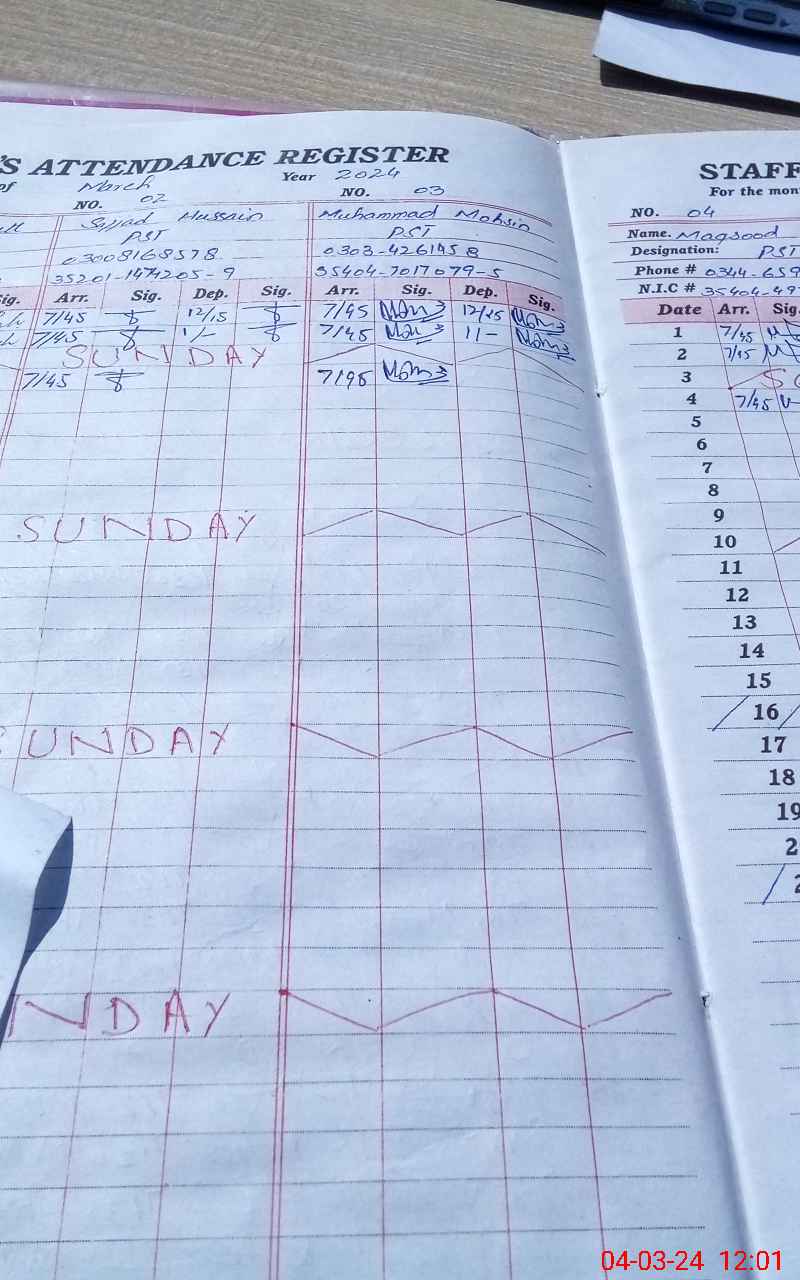 'S ATTENDANCE REGISTER
of March Year 2024
NO. 02 NO. 03
Sajjad Hussain Muhammad Mohsin
PST PST
03008168578 0303-4261458
35201-1474205-9 35404-7017079-5
Sig. Arr. Sig. Dep. Sig. Arr. Sig. Dep. Sig.
7/45 12/15 7/45 12/15
7/45 1/- 7/45 11-
SUNDAY
7/45 7/45
SUNDAY
SUNDAY
NDAY
STAFF
For the mon
NO. 04
Name. Maqsood
Designation: PST
Phone # 0344-659
N.I.C # 35404-497
Date Arr. Sig
1 7/45
2 7/45
3 S
4 7/45
5
6
7
8
9
10
11
12
13
14
15
16
17
18
19
2
2
04-03-24 12:01